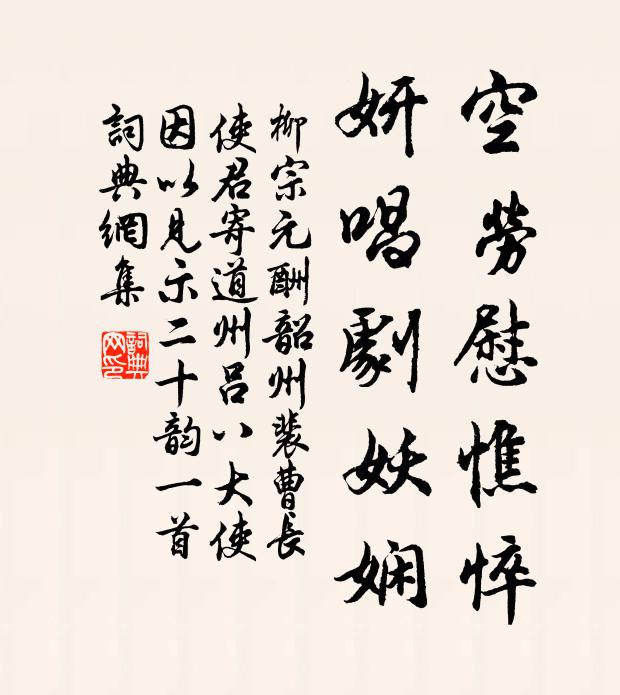 空勞慰憔悴
妍唱劇妖嫻
柳宗元酬韶州裴曹長
使君寄道州呂八大使
因以見示二十韵一首
詞典網集
詞典網印